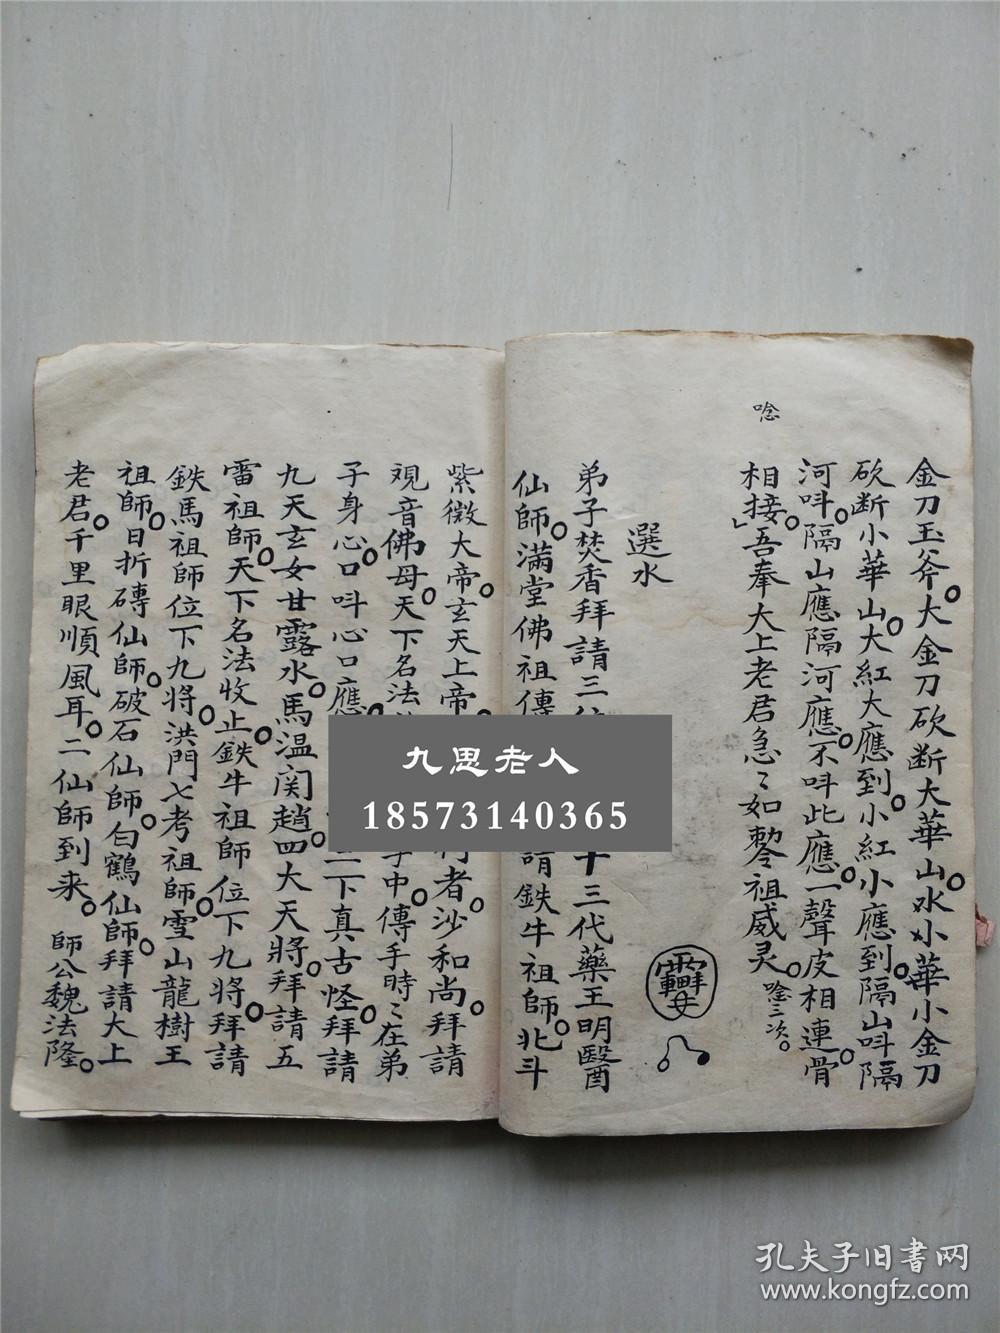 金刀玉斧。大金刀砍断大華山。水小華小金刀
砍断小華山。大紅大應到。小紅小應到。隔山呌隔
河呌。隔山應隔河應。不呌此應。一聲皮相連。骨
唸
相接。吾奉大上老君急〻如勅令祖威灵。唸三次。
選水
弟子焚香拜請三 十三代藥王明醫
仙師。满堂佛祖傳 請鉄牛祖師。北斗
紫微大帝。玄天上帝 行者。沙和尚。拜請
观音佛母。天下名法 字中。傳手時〻在弟
子身心。口呌心口應 二下真古怪。拜請
九天玄女甘露水。馬温関趙四大天將。拜請五
雷祖師。天下名法收止鉄牛祖師位下九將。拜請
鉄馬祖師位下九將。洪門七考祖師。雪山龍樹王
祖師。日折磚仙師。破石仙師。白鶴仙師。拜請大上
老君。千里眼順風耳。二仙師到来。師公魏法隆。
九思老人
18573140365
孔夫子旧書网
www.kongfz.com